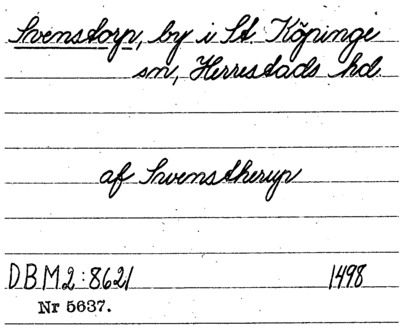 Svenstorp, by i St. Köpinge
sn, Herrestads hd.
af Swenstherup
DBM2:8621 1498
Nr 5637.